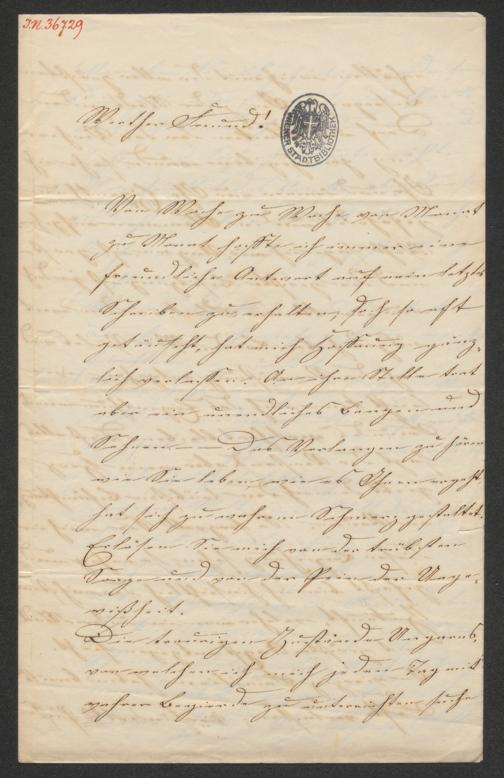 J.N. 36729
Werther Freund!
WIENER STADTBIBLIOTHEK
Von Woche zu Woche, von Monat
zu Monat hoffte ich immer eine
freundliche Antwort auf mein letztes
Schreiben zu erhalten, doch so oft
getäuscht, hat mich Hoffnung gänz-
lich verlassen. An ihre Stelle trat
aber ein unendliches Bangen und
Sehnen — Das Verlangen zu hören
wie Sie leben, wie es Ihnen ergeht
hat sich zu wahrem Schmerz gestaltet.
Erlösen Sie mich von der trübsten
Sorge und von der Pein der Unge-
wißheit.
Die traurigen Zustände Ungarns,
von welchen ich mich jeden Tag mit
wahrer Begierde zu unterrichten suche